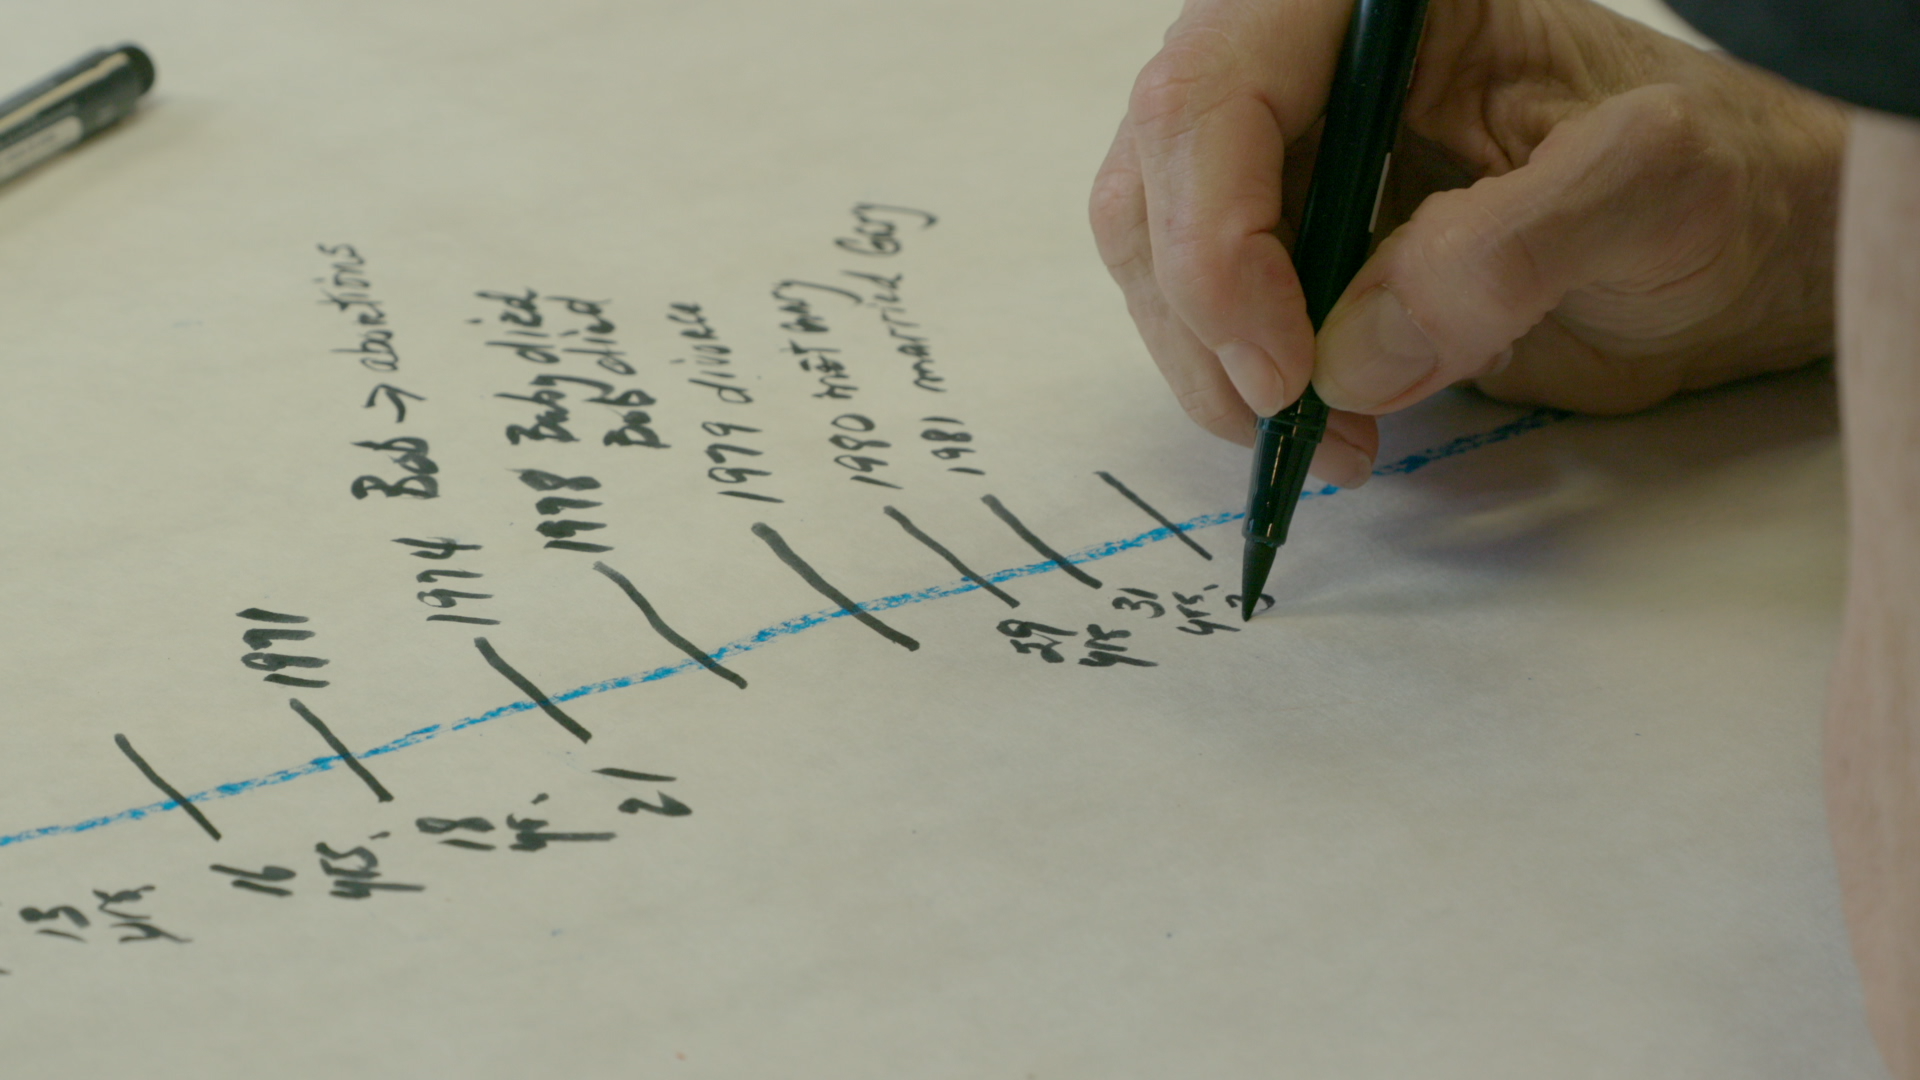 1971
1974 Bob → abortions
1978 Baby died
Bob died
1979 divorce
1980 met Gary
1981 married Gary
13
yrs.
16
yrs.
18
yr.
21
29
yrs
31
yrs.
3